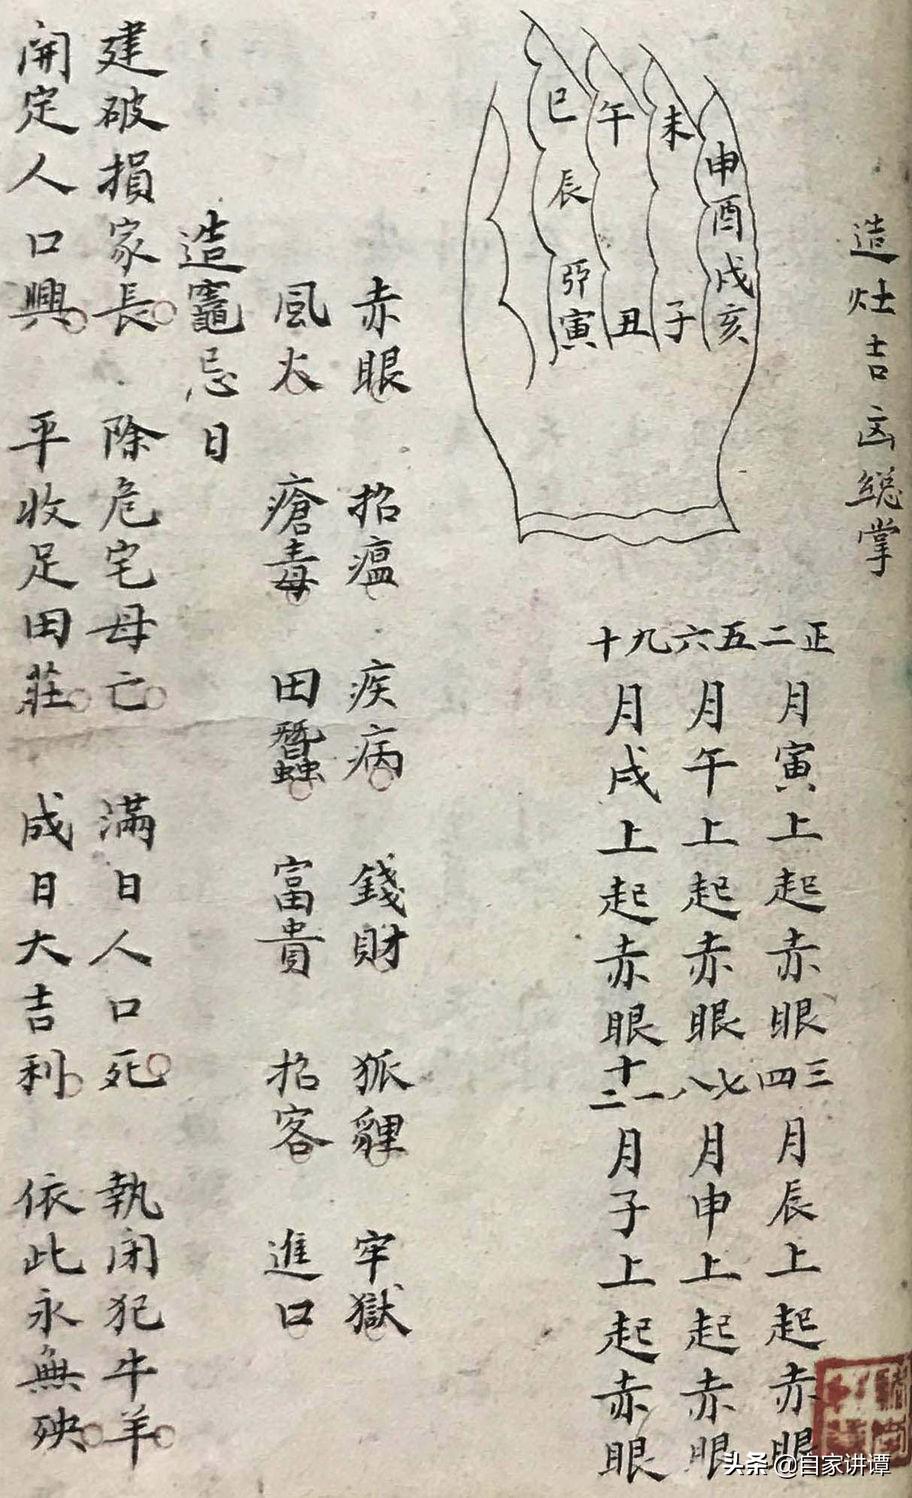 造灶吉凶縂掌
申酉戌亥
未
子
午
丑
巳
辰
卯
寅
正二月寅上起赤眼 三四月辰上起赤眼
五六月午上起赤眼 七八月申上起赤眼
九十月戌上起赤眼 十一二月子上起赤眼
赤眼 招瘟 疾病 錢財 狐貍 牢獄
風火 瘡毒 田蠶 富貴 招客 進口
造竈忌日
建破損家長 除危宅母亡 滿日人口死 執闭犯牛羊
開定人口興 平收足田莊 成日大吉利 依此永無殃
头条 @自家讲谭